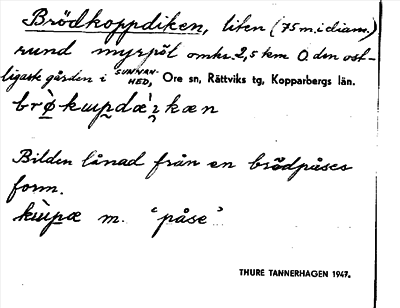 Brödkoppdiken, liten (75 m. i diam.)
rund myrpöl omkr. 2,5 km O. den ost-
ligaste gården i SUNNAN-
HED, Ore sn, Rättviks tg, Kopparbergs län.
Bilden lånad från en brödpåses
form.
m. 'påse'
THURE TANNERHAGEN 1947.